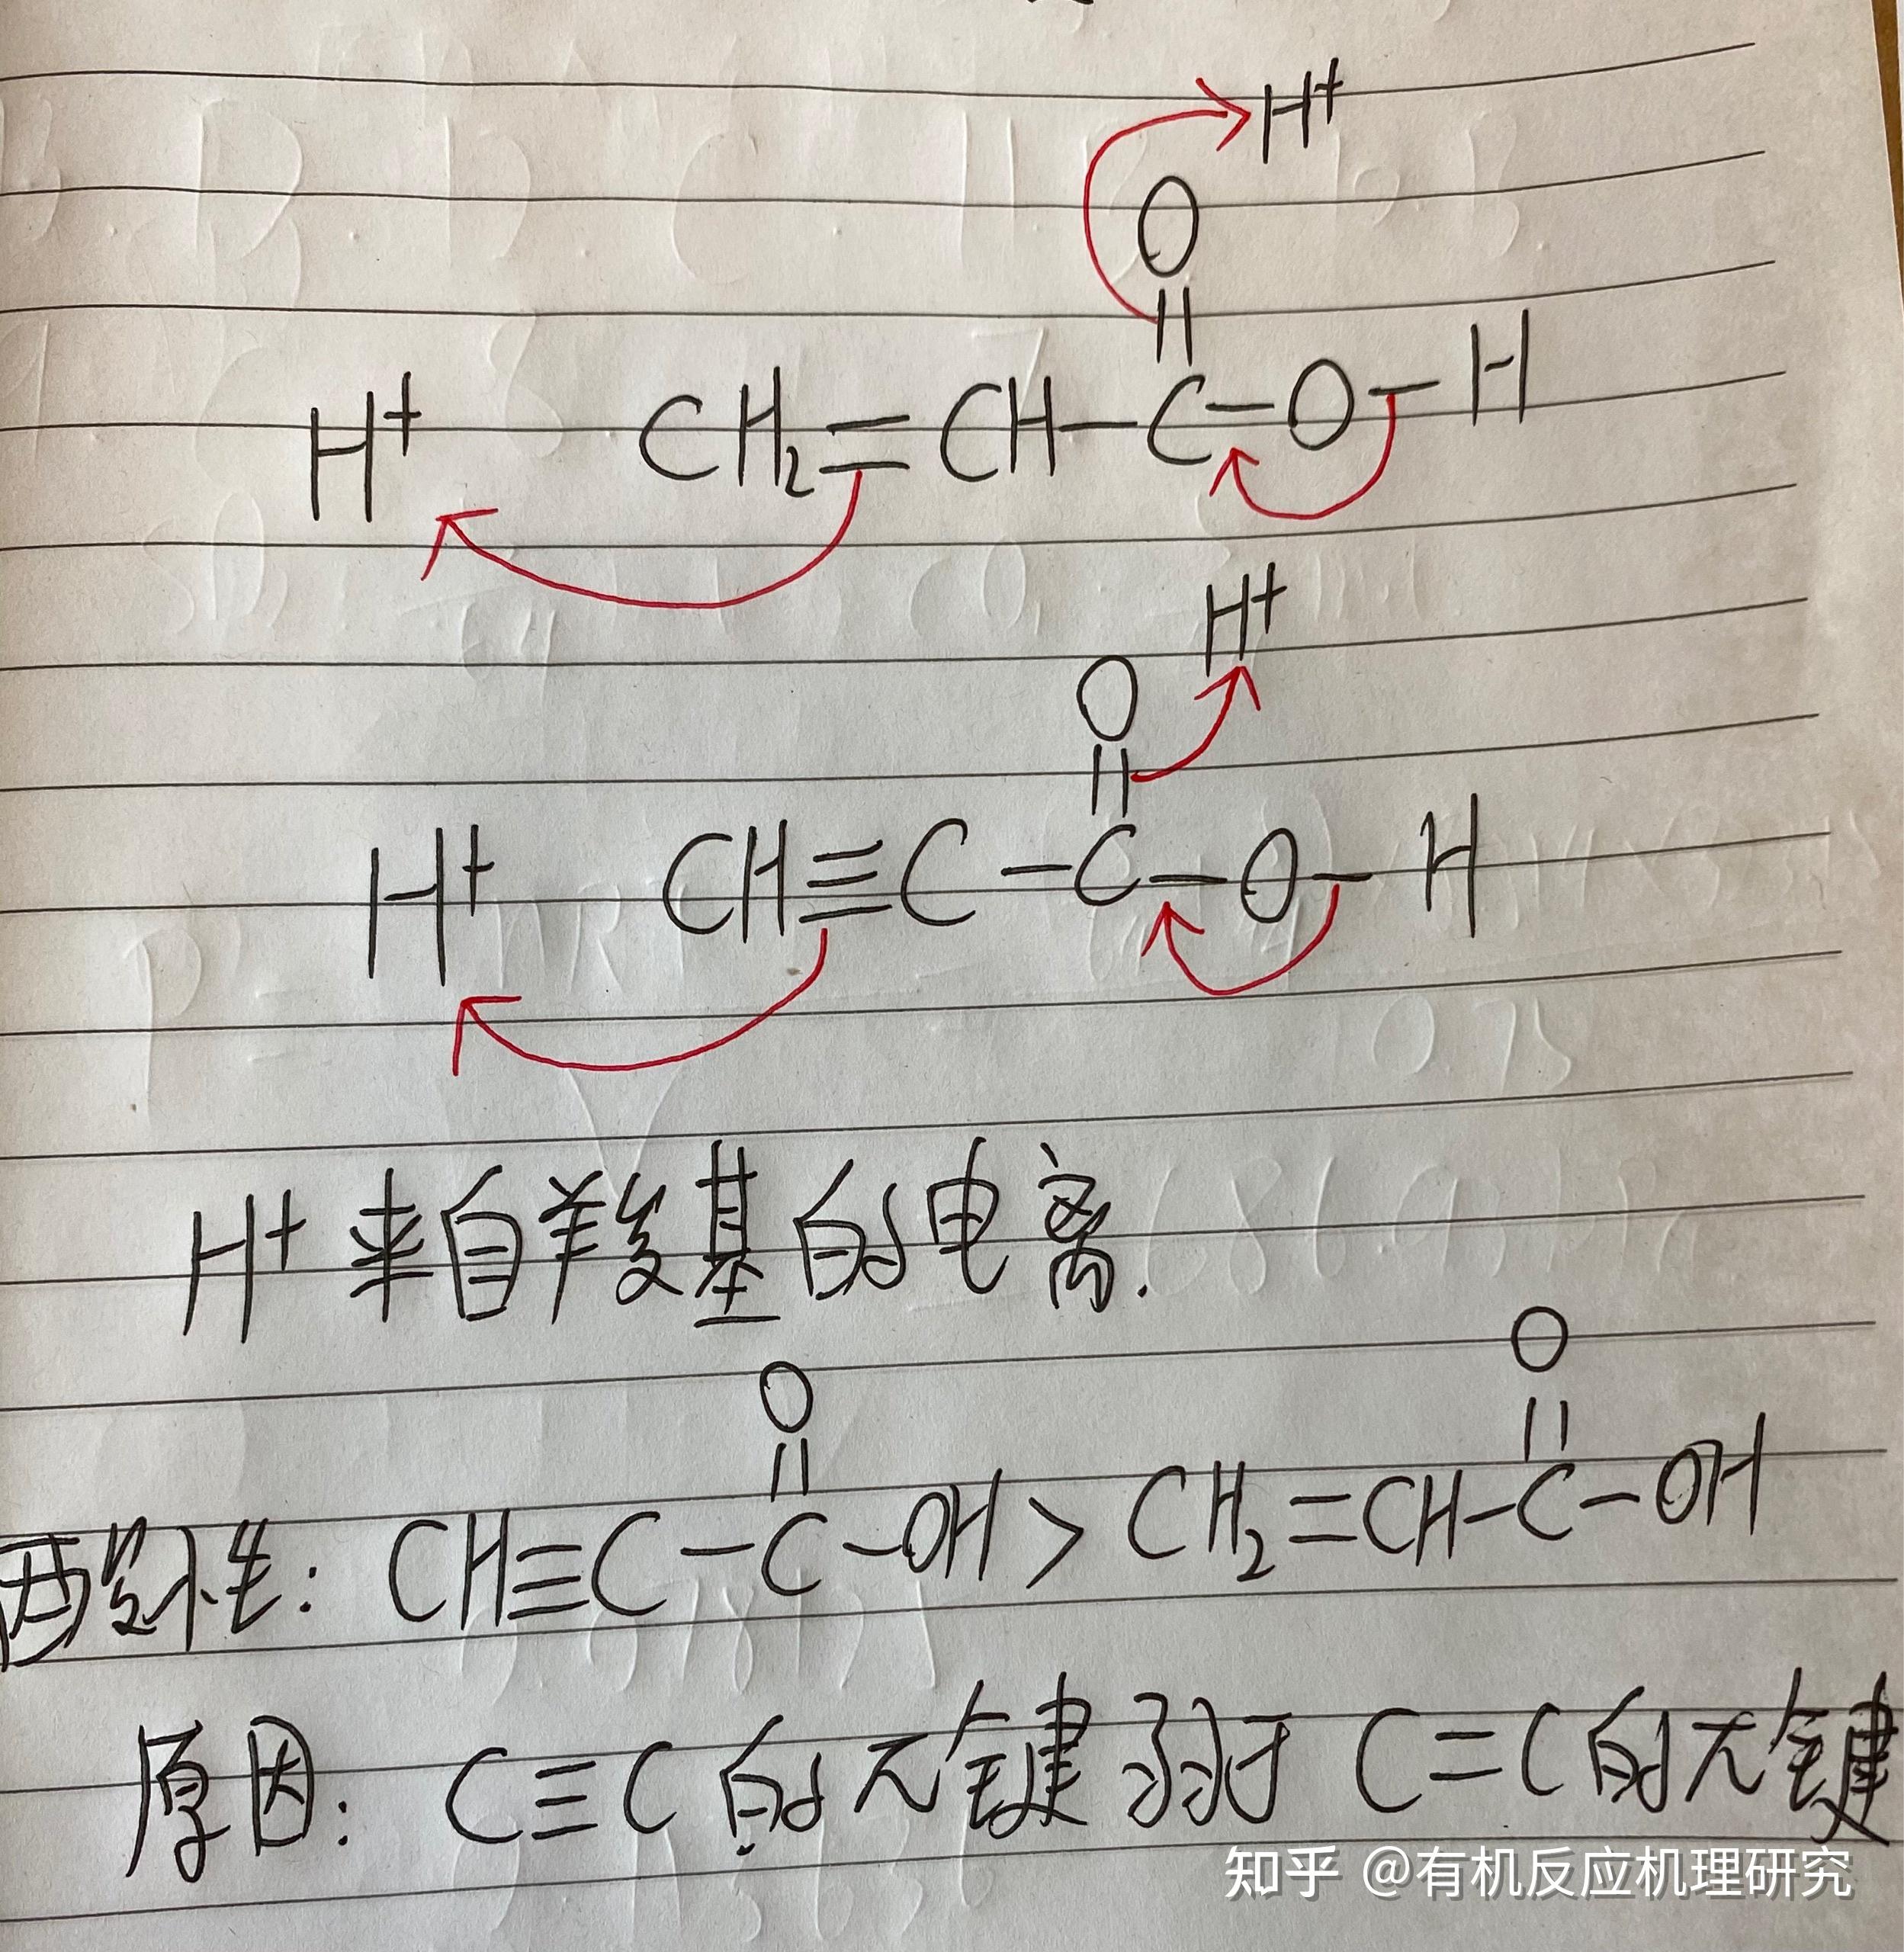 H⁺
O
H⁺ CH₂=CH-C-O-H
H⁺
O
H⁺ CH≡C-C-O-H
H⁺来自羧基的电离.
O O
酸性: CH≡C-C-OH > CH₂=CH-C-OH
原因: C≡C的π键弱于C=C的π键
知乎 @有机反应机理研究